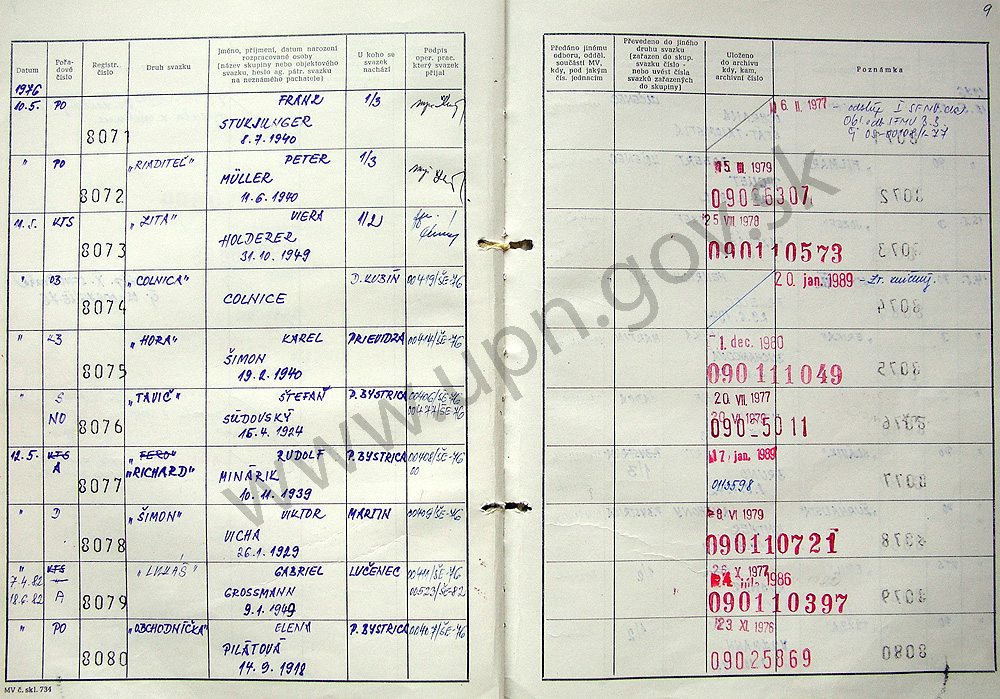 9
Datum
Pořadové číslo
Registr. číslo
Druh svazku
Jméno, příjmení, datum narození rozpracované osoby (název skupiny nebo objektového svazku, heslo ag. pátr. svazku na neznámého pachatele)
U koho se svazek nachází
Podpis oper. prac. který svazek přijal
Předáno jinému odboru, odděl. součásti MV, kdy, pod jakým čís. jednacím
Převedeno do jiného druhu svazku (zařazen do skup. svazku číslo - nebo uvést čísla svazků zařazených do skupiny)
Uloženo do archivu kdy, kam, archivní číslo
Poznámka
1976
10.5. PO 8071 FRANZ 1/3
STUKJLINGER
8.7.1940
6. II. 1977
" PO 8072 „RIADITEĽ" PETER 1/3
MÜLLER
11.6.1940
15 III 1979
09026307
11.5. KTS 8073 „ZITA" VIERA 1/2
HOLDERER
31.10.1949
25 VII 1978
090110573
" OB 8074 „COLNICA" D. KUBÍN 00419/ŠE-76
COLNICE
20. jan. 1989
" 8075 „HORA" KAREL PRIEVIDZA 00414/ŠE-76
ŠIMON
19.2.1940
1. dec. 1980
090111049
" S NO 8076 „TAVIČ" ŠTEFAN P. BYSTRICA 00406/ŠE-76
00477/ŠE-76
SÚDOVSKÝ
15.4.1924
20. VII. 1977
090-5011
12.5. KTS A 8077 „FERO" „RICHARD" RUDOLF P. BYSTRICA 00408/ŠE-76
00
MINÁRIK
10.11.1939
17. jan. 1989
0113598
" D 8078 „ŠIMON" VIKTOR MARTIN 00409/ŠE-76
VICHA
26.1.1929
8 VI 1979
090110721
" KTS 8079 „LUKÁŠ" GABRIEL LUČENEC 00411/ŠE-76
7.4.82
18.6.82 A GROSSMANN 00523/ŠE-82
9.1.1949
26 X 1977
júla 1986
090110397
" PO 8080 „OBCHODNÍČKA" ELENA P. BYSTRICA 00407/ŠE-76
PILÁTOVÁ
14.9.1918
23 XI 1976
09025869
MV č. skl. 734
www.upn.gov.sk